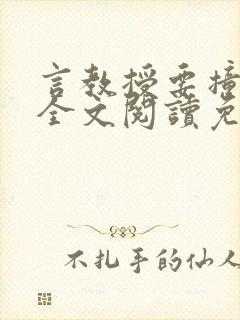 言教授要撞
全文閱讀免
不扎手的仙人